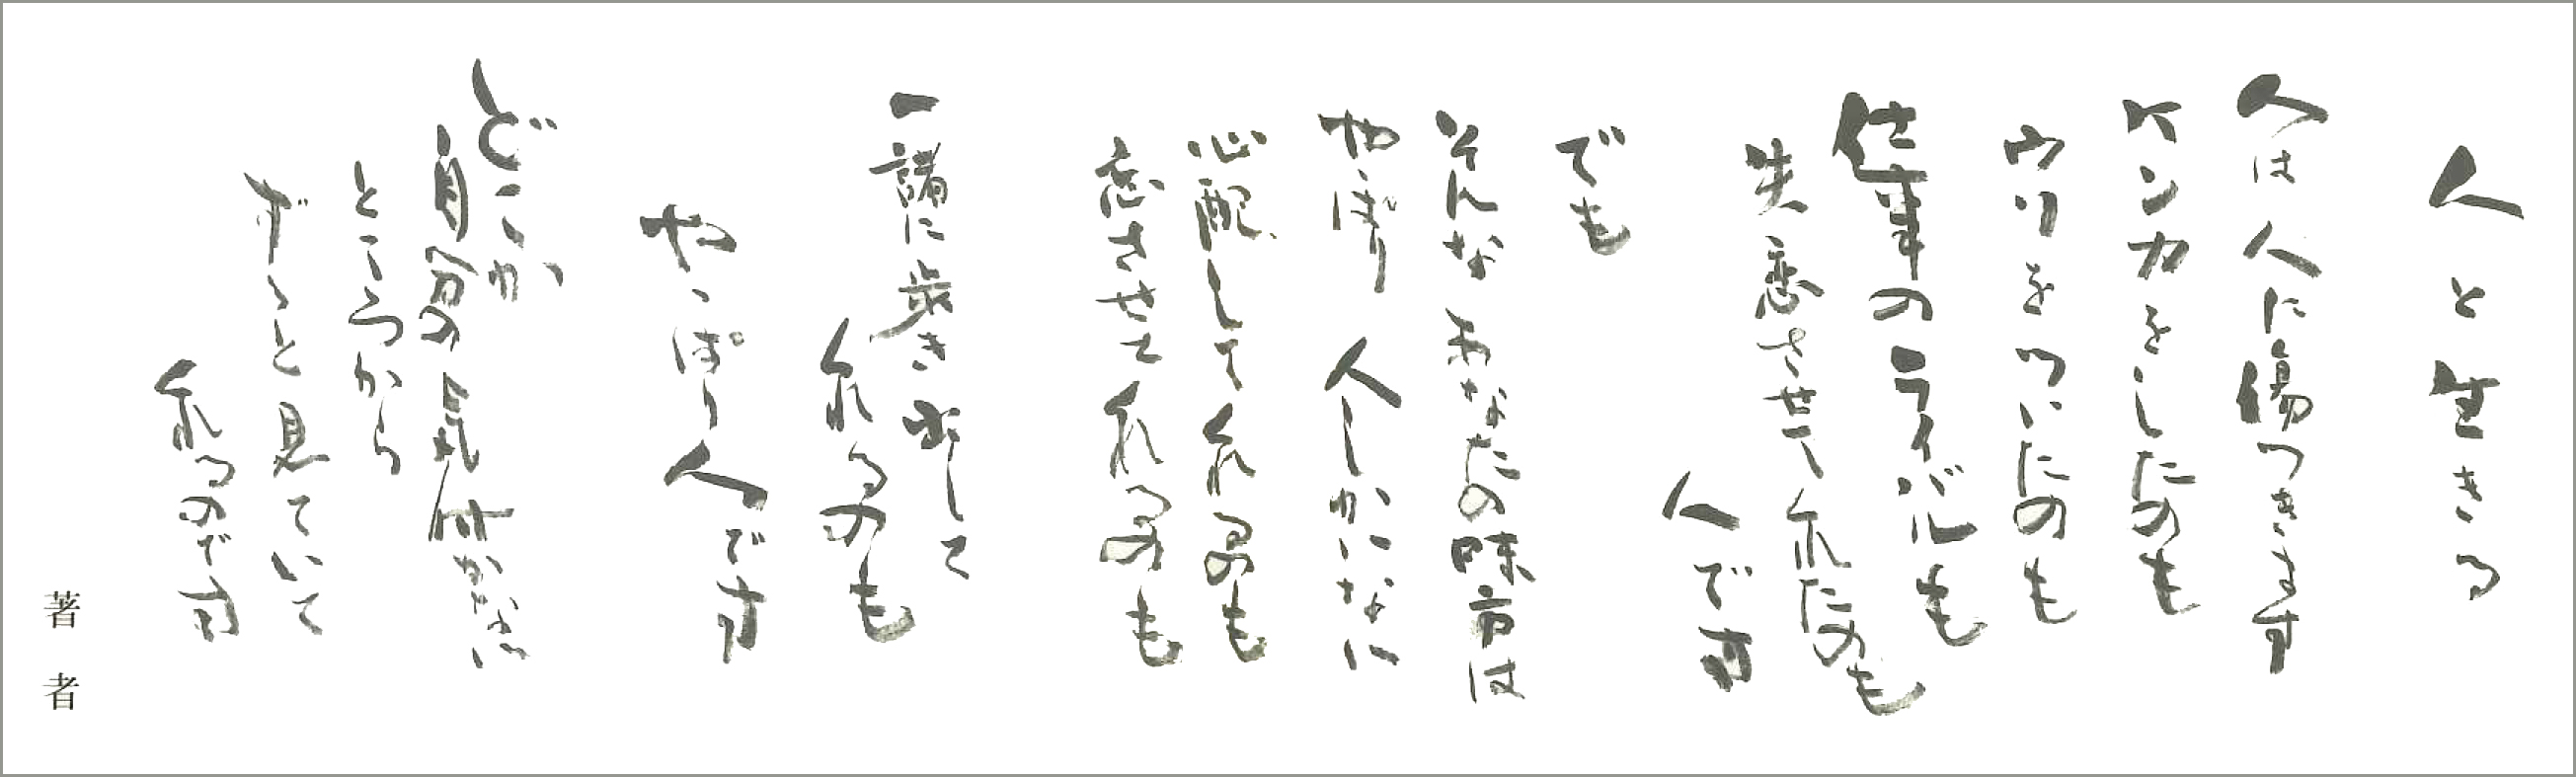 人と生きる
人は人に傷つきます
ケンカをしたのも
ウソをついたのも
仕事のライバルも
失恋させてくれたのも
人です
でも
そんなあなたの味方は
やっぱり人しかいない
心配してくれるのも
恋させてくれるのも
一諸に歩き出して
くれるのも
やっぱり人です
どこか
自分の気付かない
ところから
ずっと見ていて
くれるのです
著者